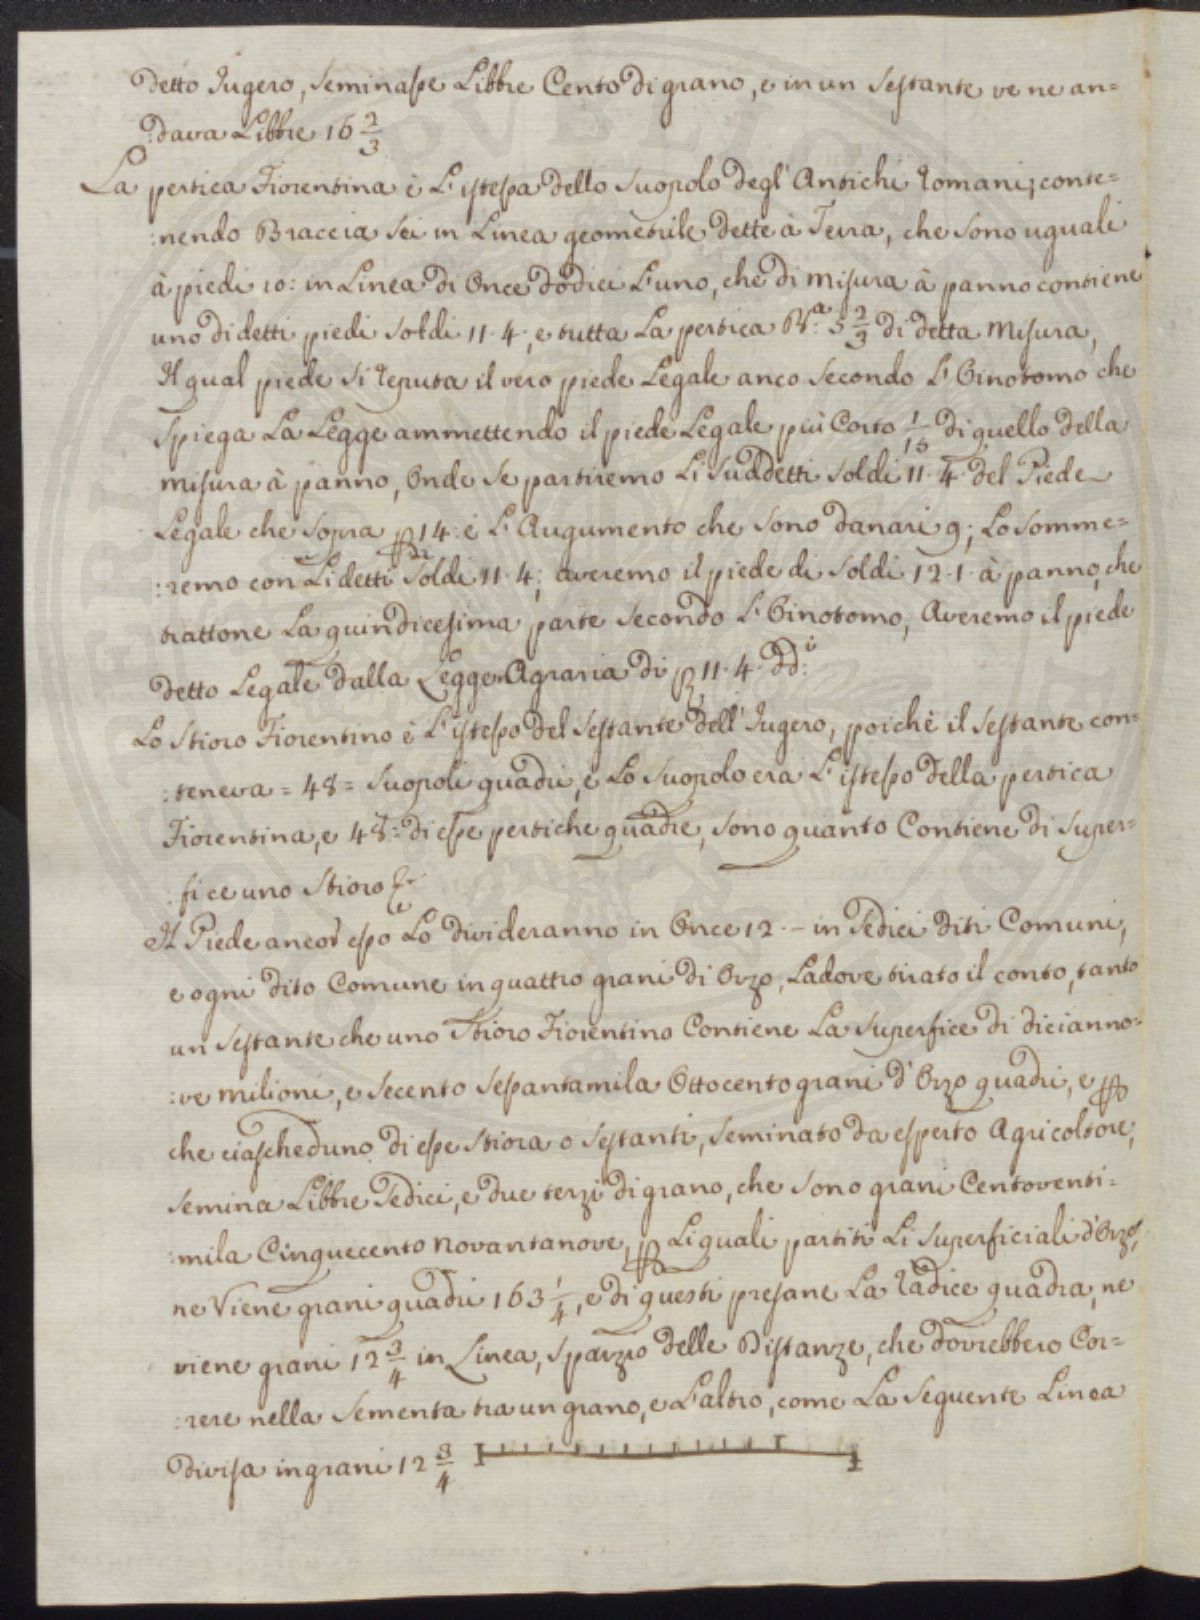 detto Iugero, seminasse Libbre Cento di grano, e in un sestante ve ne an=
:dava Libbre 16 2/3
La pertica Fiorentina è L'istessa dello suopolo degl'Antichi Romani, conte=
:nendo Braccia sei in Linea geometrile dette à Terra, che sono uguali
à piedi 10: in Linea di Once dodici L'uno, che di misura à panno contiene
uno di detti piedi soldi 11·4, e tutta La pertica B.ª 5 2/3 di detta Misura,
Il qual piede si reputa il vero piede Legale anco secondo L'Ginotomo che
spiega La Legge ammettendo il piede Legale più Corto 1/15 di quello della
misura à panno, Onde se partiremo Li suddetti soldi 11·4· del Piede
Legale che sopra p 14: è L'Augumento che sono danari 9; Lo somme=
:remo con Li detti di soldi 11·4; averemo il piede di soldi 12·1· à panno, che
trattone La quindicesima parte secondo L'Ginotomo, Averemo il piede
detto Legale dalla Legge Agraria di ß 11·4· dd:i
Lo stioro Fiorentino è L'istesso del sestante dell'Iugero, poichè il sestante con=
:teneva = 48 = suopoli quadri, e Lo suopolo era L'istesso della pertica
Fiorentina, e 48: di esse pertiche quadre, sono quanto Contiene di super=
:fice uno stioro &c
Il Piede ancor esso Lo divideranno in Once 12·- in sedici diti Comuni,
e ogni dito Comune in quattro grani di Orzo, Ladove tirato il conto, tanto
un sestante che uno stioro Fiorentino Contiene La superfice di dicianno=
:ve milioni, e secento sessantamila Ottocento grani d'Orzo quadri, e p
che ciascheduno di esse stiora o sestanti, seminato da esperto Agricoltore,
semina Libbre sedici, e due terzi di grano, che sono grani Centoventi=
:mila Cinquecento novantanove, p Li quali partiti Li superficiali d'Orzo,
ne viene grani quadri 163 1/4, e di questi presane La radice quadra, ne
viene grani 12 3/4 in Linea, sparzio delle Distanze, che dovrebbero Cor=
:rere nella sementa tra un grano, e L'altro, come La seguente Linea
divisa in grani 12 3/4